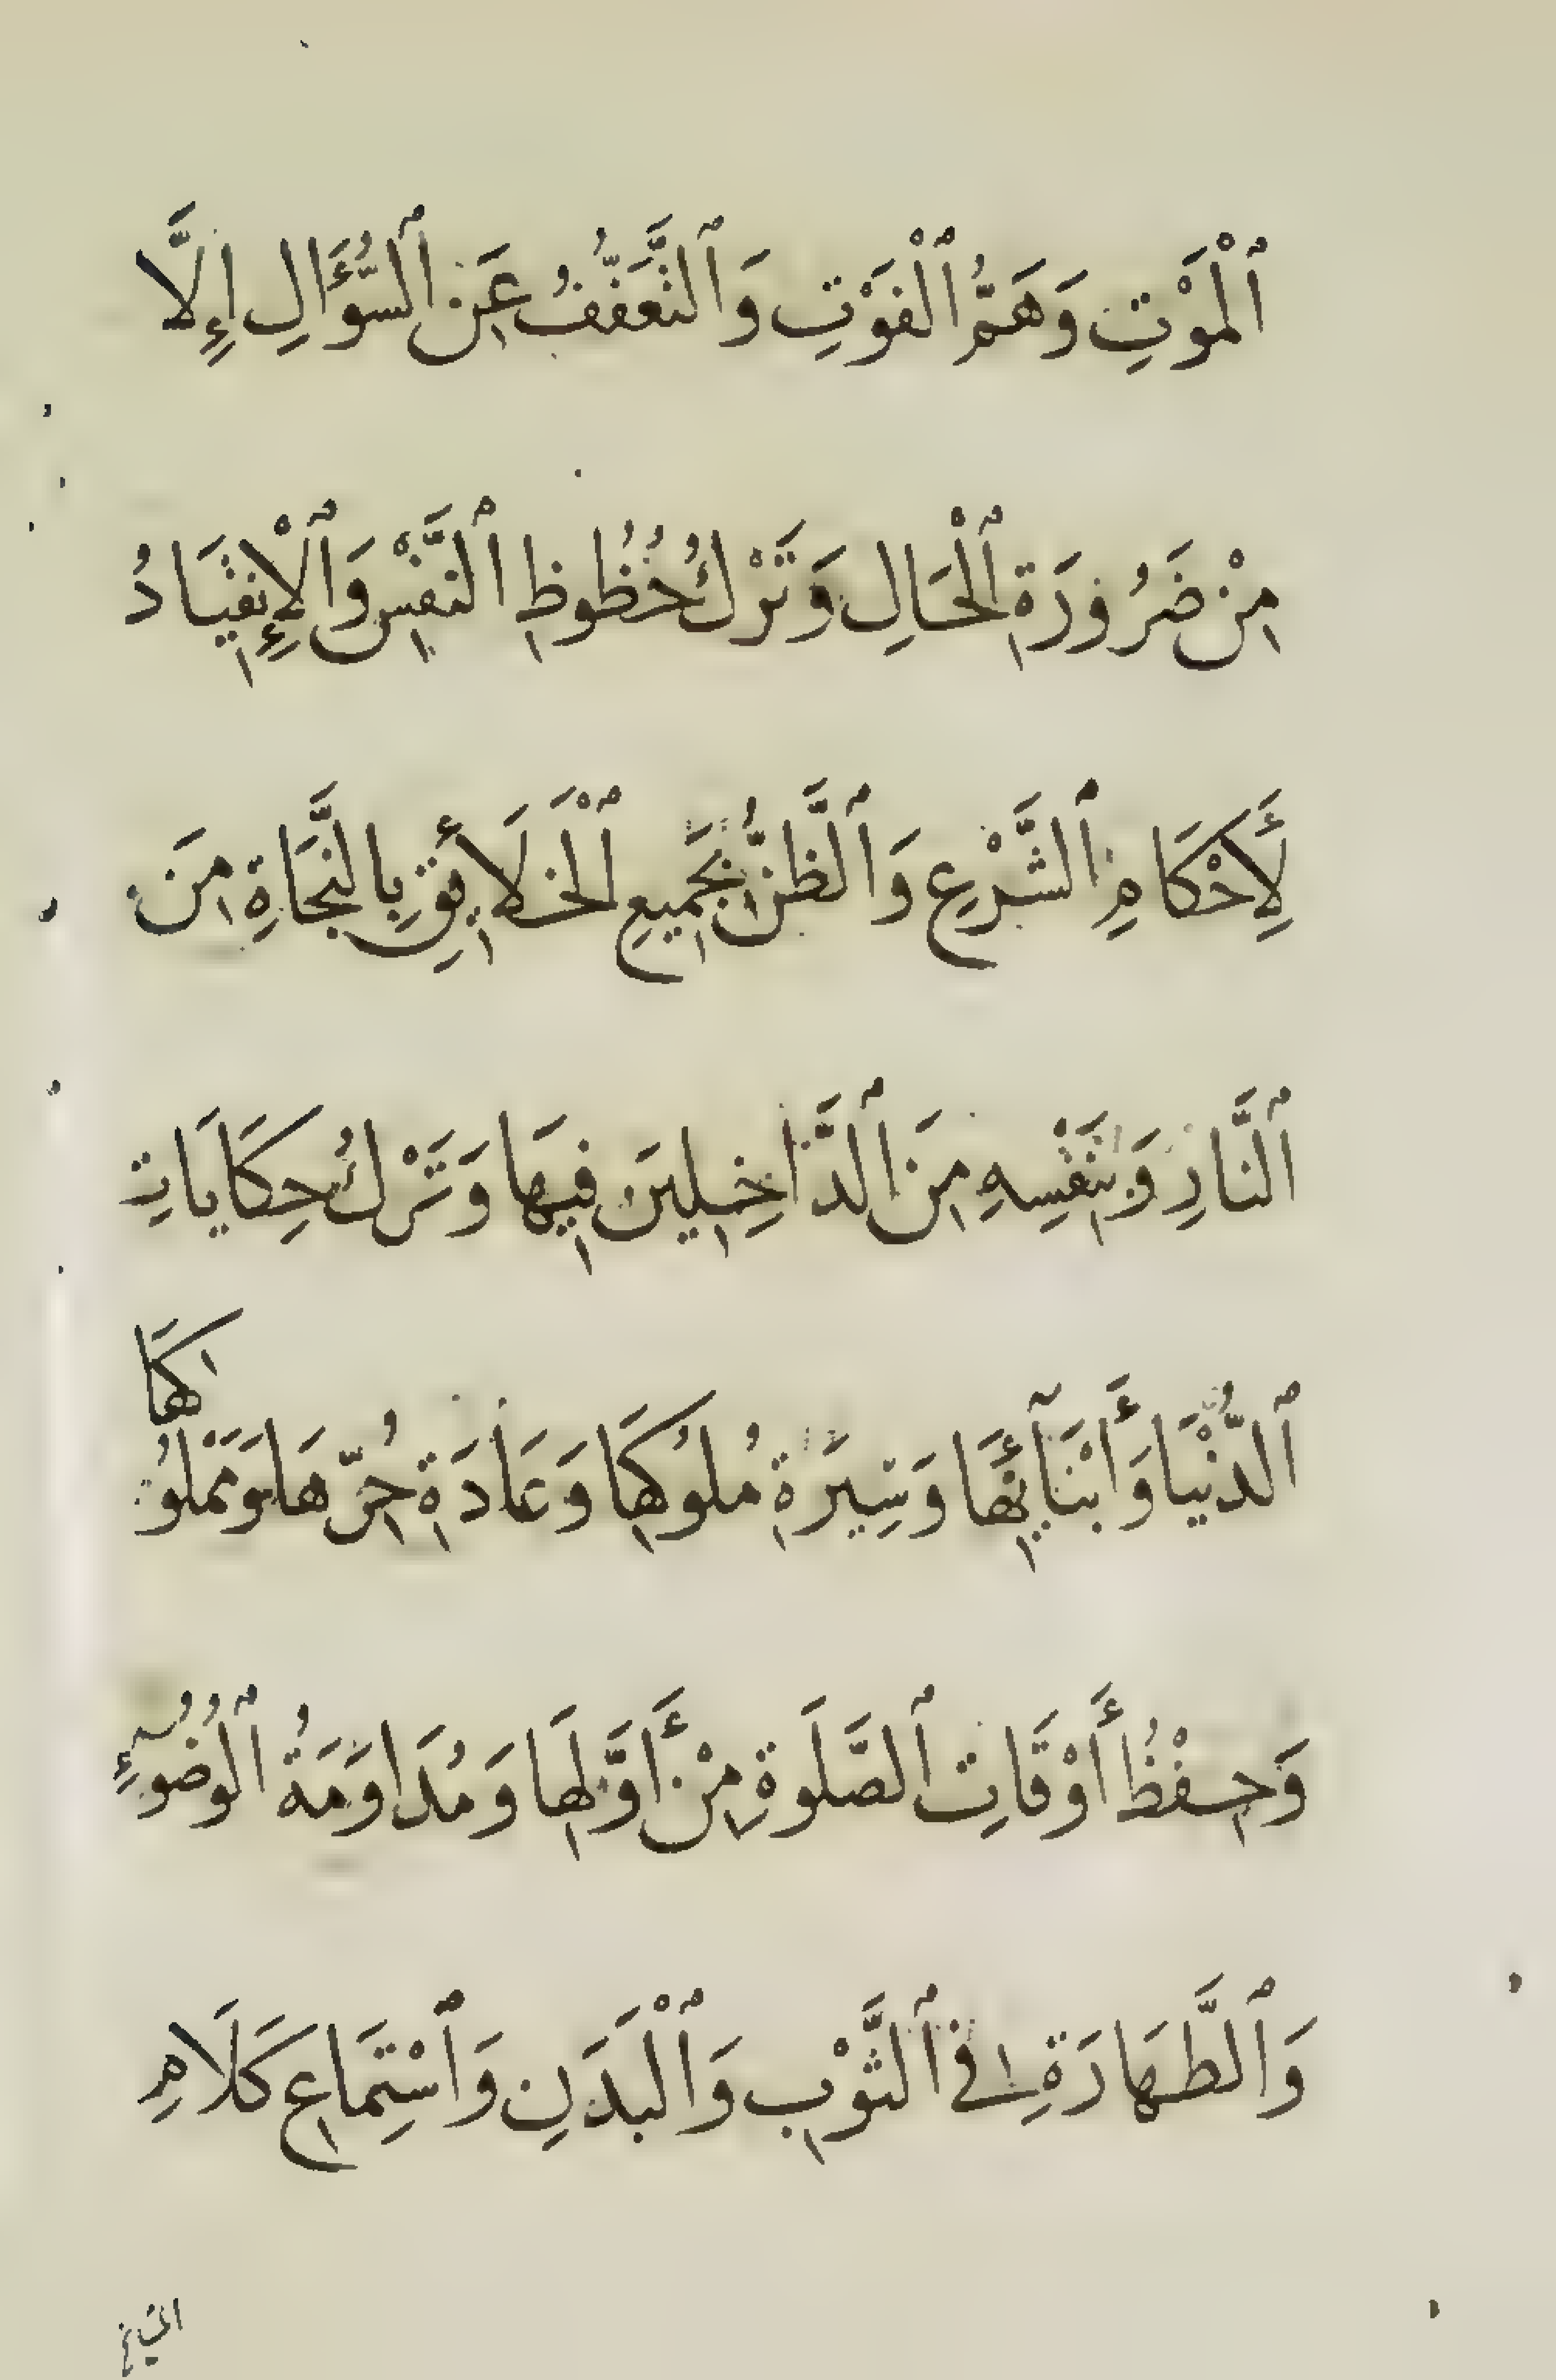 ٱلْمَوْتِ وَهَمُّ ٱلْفَوْتِ وَٱلتَّعَفُّفُ عَنِ ٱلسُّؤَالِ إِلَّا
مِنْ ضَرُورَةِ ٱلْحَالِ وَتَرْكُ حُظُوظِ ٱلنَّفْسِ وَٱلْإِنْقِيَادُ
لِأَحْكَامِ ٱلشَّرْعِ وَٱلظَّنُّ بِجَمِيعِ ٱلْخَلَائِقِ بِالنَّجَاةِ مِنَ
ٱلنَّارِ وَبِنَفْسِهِ مِنَ ٱلدَّاخِلِينَ فِيهَا وَتَرْكُ حِكَايَاتِ
ٱلدُّنْيَا وَأَبْنَآئِهَا وَسِيرَةِ مُلُوكِهَا وَعَادَةِ حُرِّهَا وَمَمْلُوكِهَا
وَحِفْظُ أَوْقَاتِ ٱلصَّلَوةِ مِنْ أَوَّلِهَا وَمُدَاوَمَةُ ٱلْوُضُوءِ
وَٱلطَّهَارَةِ فِي ٱلثَّوْبِ وَٱلْبَدَنِ وَٱسْتِمَاعِ كَلَامِ